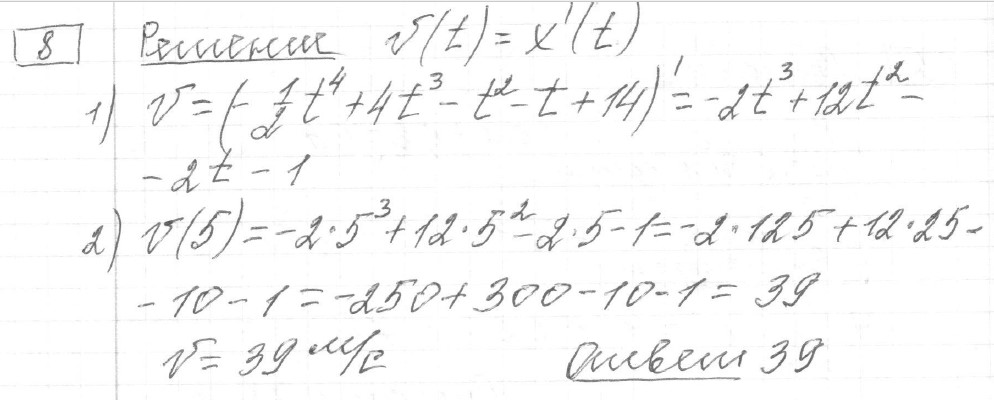 8 Решение v(t) = x'(t)
1) v = (-1/2 t⁴ + 4t³ - t² - t + 14)' = -2t³ + 12t² -
- 2t - 1
2) v(5) = -2·5³ + 12·5² - 2·5 - 1 = -2·125 + 12·25 -
- 10 - 1 = -250 + 300 - 10 - 1 = 39
v = 39 м/с Ответ 39